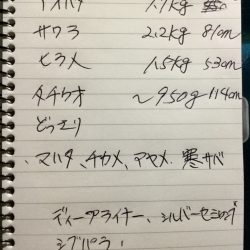 アオハタ 1.7kg
サワラ 2.2kg 81cm
ヒラメ 1.5kg 53cm
タチウオ ~950g 114cm
どっさり
、マハタ、チカメ、アヤメ、寒サバ
ディープライナー、シルバーセミロング
シブパラ！